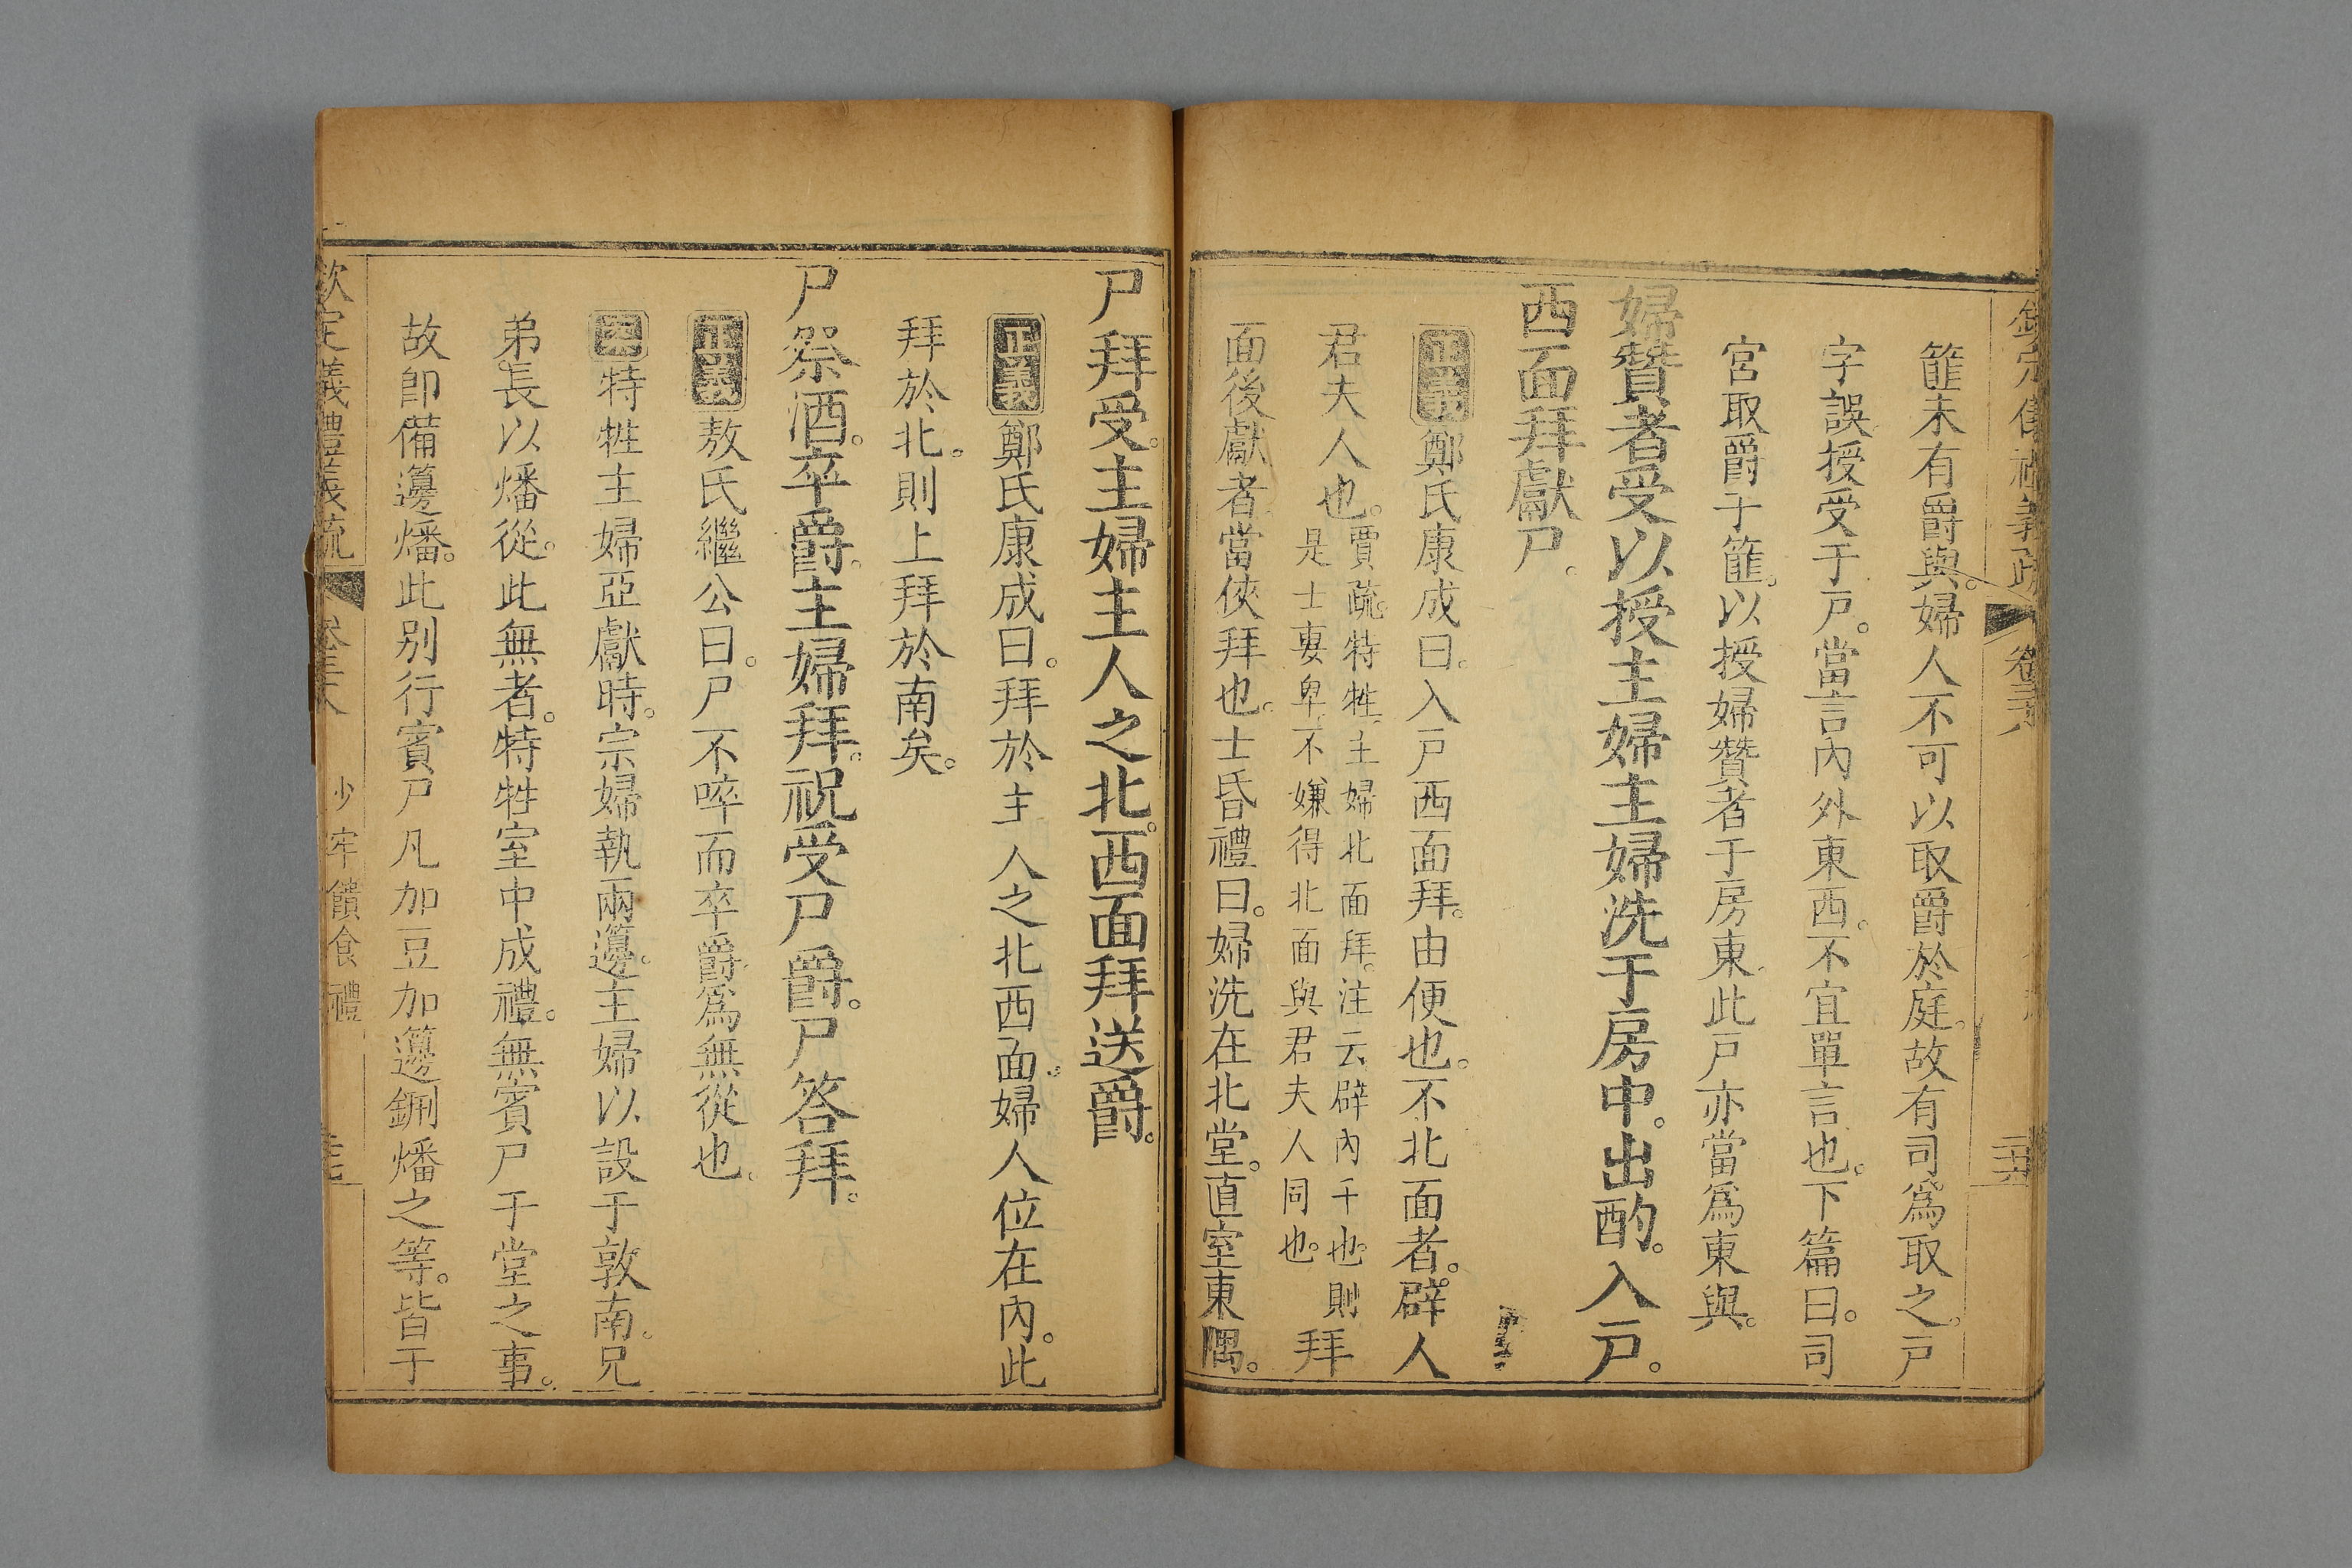 欽定儀禮義疏 卷三十八 二十六
篚未有爵與。婦人不可以取爵於庭。故有司爲取之。戸
字誤授受于戸。當言內外東西。不宜單言也。下篇曰。司
宮取爵于篚。以授婦贊者于房東。此戸亦當爲東與。
婦贊者受以授主婦主婦洗于房中。出酌。入戸。
西面拜獻尸。
正義鄭氏康成曰。入戸西面拜。由便也。不北面者。辟人
君夫人也。賈疏。特牲。主婦北面拜。注云。辟內子也。則
是士妻卑。不嫌得北面與君夫人同也。拜
面後獻者。當俠拜也。士昏禮曰。婦洗在北堂。直室東隅。
尸拜受。主婦主人之北。西面拜送爵。
正義鄭氏康成曰。拜於主人之北西面。婦人位在內。此
拜於北。則上拜於南矣。
尸祭酒。卒爵。主婦拜。祝受尸爵。尸答拜。
正義敖氏繼公曰。尸不啐而卒爵。爲無從也。
案特牲主婦亞獻時。宗婦執兩籩。主婦以設于敦南。兄
弟長以燔從。此無者。特牲室中成禮。無賓尸于堂之事。
故即備籩燔。此別行賓尸凡加豆加籩鉶燔之等。皆于
欽定儀禮義疏 卷三十八 少牢饋食禮 二十七